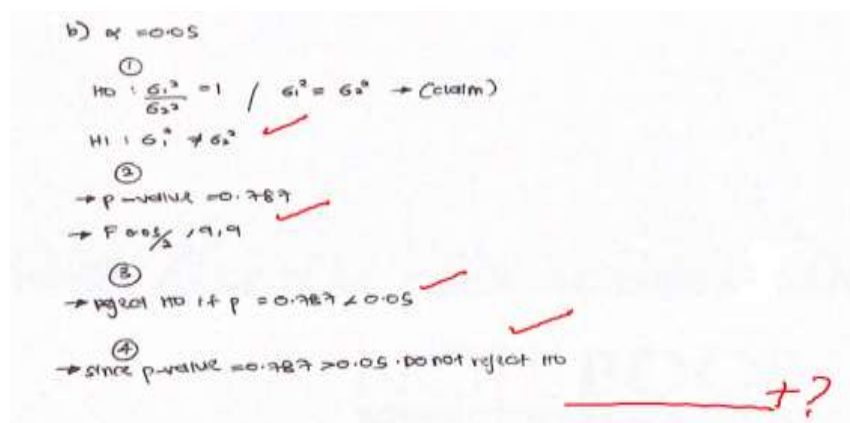 b) α = 0.05
①
H0 : σ₁²/σ₂² = 1 / σ₁² = σ₂² → (claim)
H1 : σ₁² ≠ σ₂²
②
→ p-value = 0.787
→ F 0.05/2 , 9,9
③
→ reject H0 if p = 0.787 < 0.05
④
→ since p-value = 0.787 > 0.05 . Do not reject H0
+?